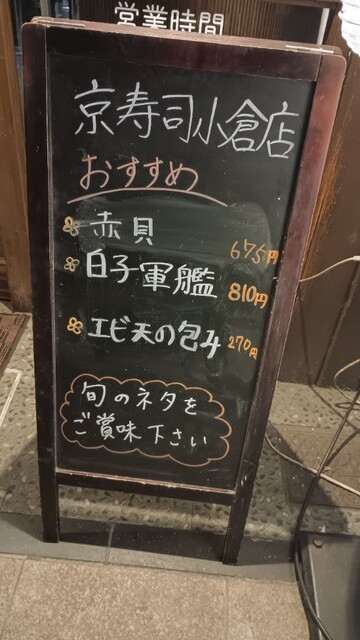 営業時間
京寿司小倉店
おすすめ
赤貝 675円
白子軍艦 810円
エビ天の包み 270円
旬のネタを
ご賞味下さい